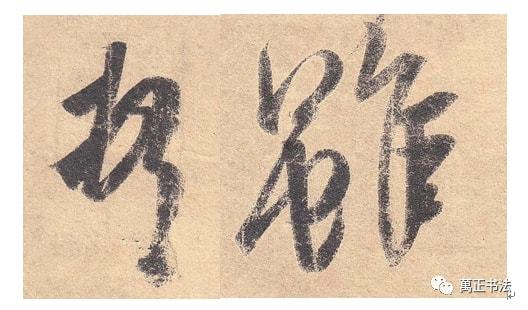 雖
萬正书法